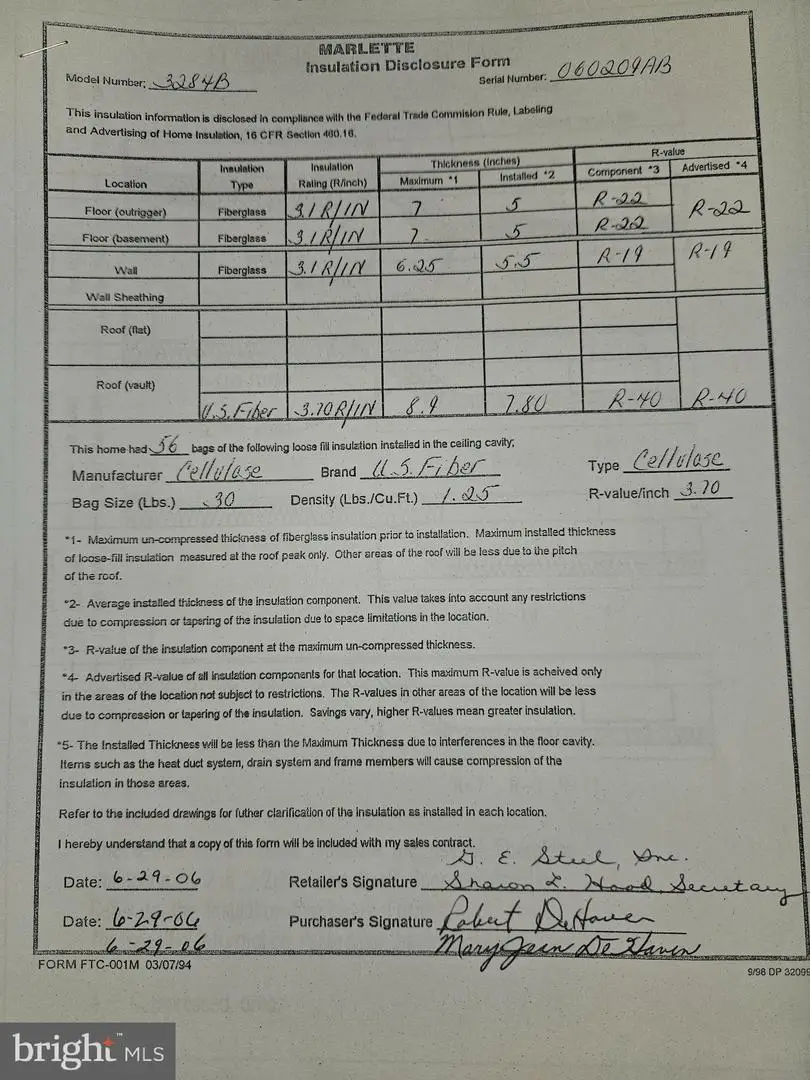 MARLETTE
Insulation Disclosure Form
Model Number: 3284B Serial Number: 060209AB
This insulation information is disclosed in compliance with the Federal Trade Commision Rule, Labeling
and Advertising of Home Insulation, 16 CFR Section 460.16.
Location Insulation Type Insulation Rating (R/inch) Thickness (Inches) Maximum *1 Installed *2 R-value Component *3 Advertised *4
Floor (outrigger) Fiberglass 3.1 R/IN 7 5 R-22 R-22
Floor (basement) Fiberglass 3.1 R/IN 7 5 R-22
Wall Fiberglass 3.1 R/IN 6.25 5.5 R-19 R-19
Wall Sheathing
Roof (flat)
Roof (vault)
U.S. Fiber 3.70 R/IN 8.9 7.80 R-40 R-40
This home had 56 bags of the following loose fill insulation installed in the ceiling cavity;
Manufacturer Cellulose Brand U.S. Fiber Type Cellulose
Bag Size (Lbs.) 30 Density (Lbs./Cu.Ft.) 1.25 R-value/inch 3.70
*1- Maximum un-compressed thickness of fiberglass insulation prior to installation. Maximum installed thickness
of loose-fill insulation measured at the roof peak only. Other areas of the roof will be less due to the pitch
of the roof.
*2- Average installed thickness of the insulation component. This value takes into account any restrictions
due to compression or tapering of the insulation due to space limitations in the location.
*3- R-value of the insulation component at the maximum un-compressed thickness.
*4- Advertised R-value of all insulation components for that location. This maximum R-value is acheived only
in the areas of the location not subject to restrictions. The R-values in other areas of the location will be less
due to compression or tapering of the insulation. Savings vary, higher R-values mean greater insulation.
*5- The Installed Thickness will be less than the Maximum Thickness due to interferences in the floor cavity.
Items such as the heat duct system, drain system and frame members will cause compression of the
insulation in those areas.
Refer to the included drawings for futher clarification of the insulation as installed in each location.
I hereby understand that a copy of this form will be included with my sales contract.
G. E. Steel, Inc.
Date: 6-29-06 Retailer's Signature Sharon L. Hood, Secretary
Date: 6-29-06 Purchaser's Signature Robert DeHaven
6-29-06 Mary Jean DeHaven
FORM FTC-001M 03/07/94 9/98 DP 32099
bright™ MLS